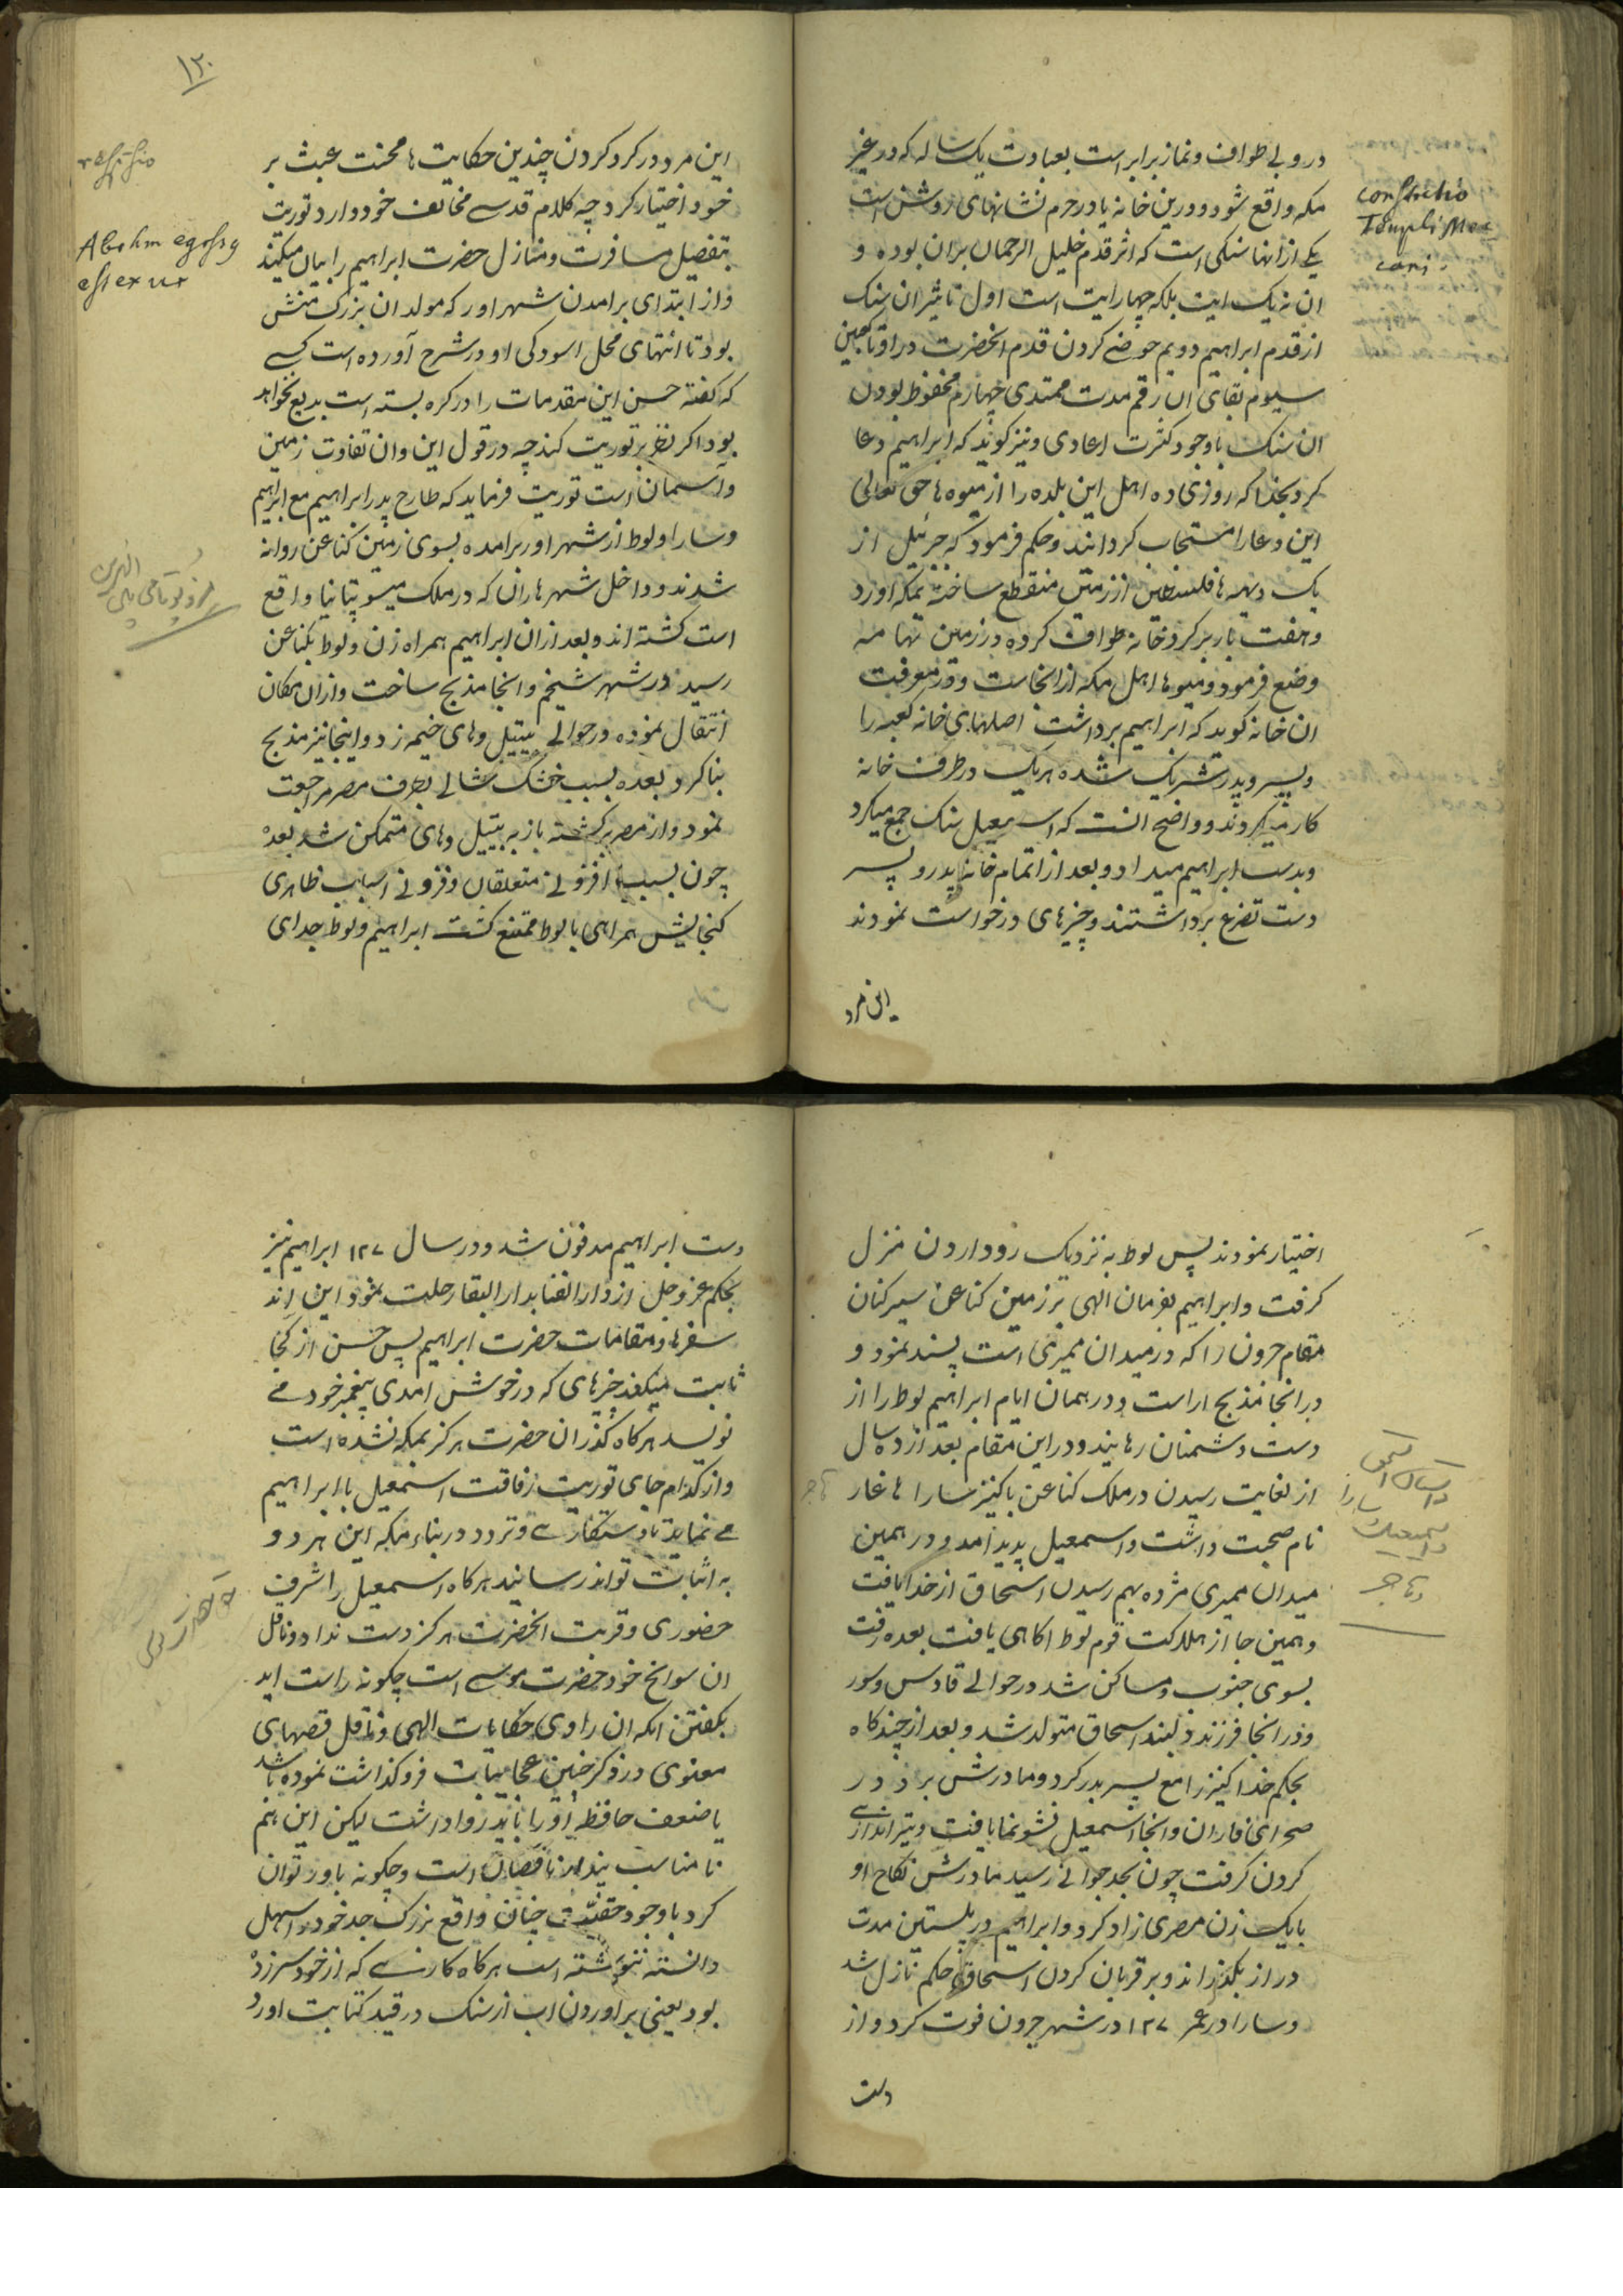 در وبی طواف و نماز برابر است بعبادت یک ساله که در غیر
مکه واقع شود و درین خانه یا در حرم نشانهای روشن است
یکی از انها سنکی است که اثر قدم خلیل الرحمان بران بوده و
ان نه یک ایت بلکه چهار ایت است اول تاثیر ان سنک
از قدم ابراهیم دویم خوضی کردن قدم انحضرت در او تا کعبین
سیوم بقای ان رقم مدت ممتدی چهارم محفوظ بودن
ان سنک با وجود کثرت اعادی و نیز کویند که ابراهیم دعا
کرد بخدا که روزی ده اهل این بلده را از میوه ها حق تعالی
این دعا را مستجاب کردانند و حکم فرمود که جبرئیل از
یک دیهه ها فلسطین از زمین منقطع ساخته بمکه اورد
و هفت بار بر کرد خانه طواف کروه در زمین تهامه
وضع فرمود و میوها اهل مکه از انجاست و در معرفت
ان خانه کوید که ابراهیم برداشت اصلهای خانه کعبه را
و پسر و پدر شریک شده هر یک در طرف خانه
کار میکردند و واضح انست که اسمعیل سنک جمع میکرد
و بدست ابراهیم میداد و بعد از اتمام خانه پدر و پسر
دست تضرع برداشتند و چیزهای درخواست نمودند
این مرد
constructio
Templi Mec
cani.
۱۳۰
این مرد در کرد کردن چندین حکایت ها محنت عبث بر
خود اختیار کرد چه کلام قدسی مخالف خود دارد توریت
بتفصیل مسافرت و منازل حضرت ابراهیم را بیان میکند
و از ابتدای برامدن شهر اور که مولد ان بزرک منش
بود تا انتهای محل اسودکی او در شرح آورده است کسی
که کفته حسن این مقدمات را در کره بسته است بدیع نخواهد
بود اکر نظر بر توریت کند چه در قول این و ان تفاوت زمین
و آسمان است توریت فرماید که طارح پدر ابراهیم مع ابراهیم
و سارا و لوط از شهر اور برامده بسوی زمین کناعن روانه
شدند و داخل شهر هاران که در ملک میسوپتانیا واقع
است کشته اند و بعد ازان ابراهیم همراه زن و لوط بکناعن
رسید در شهر شیخم و انجا مذبح ساخت و ازان مکان
انتقال نموده در حوالی بیتیل و های خیمه زد و اینجا نیز مذبح
بنا کرد بعده بسبب خشک سالی بطرف مصر مراجعت
نمود و از مصر برکشته باز به بیتیل و های متمکن شد بعده
چون بسبب افزونی متعلقان و فزونی اسباب ظاهری
کنجایش همراهی با لوط ممتنع کشت ابراهیم و لوط جدای
Abrahm egressq
est ex ur
اختیار نمودند پس لوط به نزدیک رود اردن منزل
کرفت و ابراهیم بفرمان الهی بر زمین کناعن سیر کنان
مقام حرون را که در میدان ممیری است پسند نمود و
در انجا مذبح اراست و در همان ایام ابراهیم لوط را از
دست دشمنان رهانید و در این مقام بعد از ده سال
از لغایت رسیدن در ملک کناعن با کنیز سارا هاغار
نام صحبت داشت و اسمعیل پدید آمد و در همین
میدان ممیری مژده بهم رسیدن اسحاق از خدا یافت
و همین جا از هلاکت قوم لوط اکاهی یافت بعده رفت
بسوی جنوب و ساکن شد در حوالی قادس و سور
و در انجا فرزند دلبند اسحاق متولد شد و بعد از چند کاه
بحکم خدا کنیز را مع پسر بدر کرد و مادرش برد در
صحرای فاران و انجا اسمعیل نشو نما یافت و تیر اندازی
کردن کرفت چون بحد جوانی رسید مادرش نکاح او
با یک زن مصری زاد کرد و ابراهیم در پلستین مدت
دراز بکذراند و بر قربان کردن اسحاق حکم نازل شد
و سارا در عمر ۱۲۷ در شهر حرون فوت کرد و از
دست
هاجر
دست ابراهیم مدفون شد و در سال ۱۲۷ ابراهیم نیز
بحکم عز و جل از دار الفنا بدار البقا رحلت نمود این اند
سفرها و مقامات حضرت ابراهیم پس حسن از کجا
ثابت میکند چیزهای که در خوش امدی پیغمبر خود می
نویسد هرکاه کذر ان حضرت هرکز بمکه نشده است
و از کدام جای توریت رفاقت اسمعیل با ابراهیم
می نماید تا دستکاری و تردد در بناء مکه این هر دو
به اثبات تواند رسانید هرکاه اسمعیل را شرف
حضوری و قربت انحضرت هرکز دست نداد و ناقل
ان سوانح خود حضرت موسی است چکونه راست اید
بکفتن انکه ان راوی حکایات الهی و ناقل قصهای
معنوی در ذکر چنین عجایبات فروکذاشت نموده باشد
یا ضعف حافظه او را باید روا داشت لیکن این هم
نا مناسب پنداز ناقصان است و چکونه باور توان
کرد با وجود حقیت چنان واقع بزرک جد خود را سهل
دانسته ننوشته است هرکاه کارنسی که از خود سرزد
بود یعنی بر اوردن اب از سنک در قید کتابت اورد